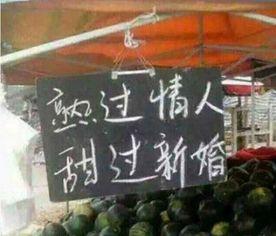 熟过情人
甜过新婚